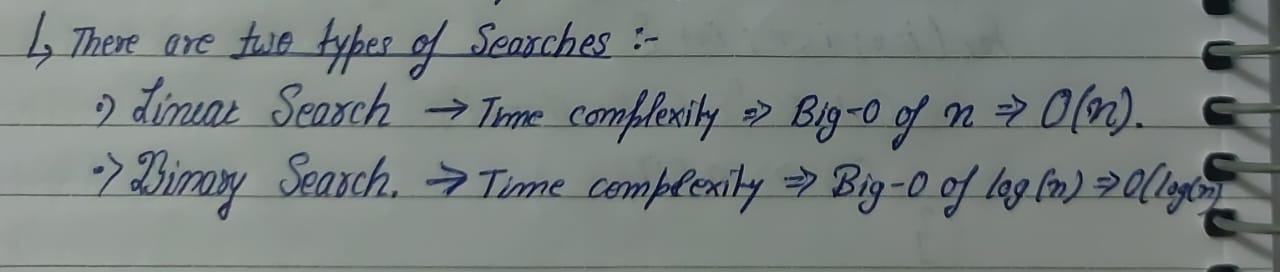 ↳ There are two types of Searches :-
·) Linear Search → Time complexity ⇒ Big-O of n ⇒ O(n).
·) Binary Search. → Time complexity ⇒ Big-O of log(n) ⇒ O(log(n)